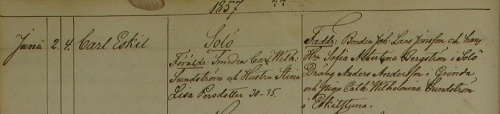 1857
Junii 2. 4. Carl Eskil
Solö
Föräldr: Smeden Carl Wilh.
Sundström och Hustru Stina
Lisa Persdotter 30-35.
Faddr: Bonden Joh. Lars Jansson och hans
Hu Sofia Albertina Bergström i Solö
Dräng Anders Andersson i Grinda
och Piga Cath. Wilhelmina Sundström
i Eskilstuna.